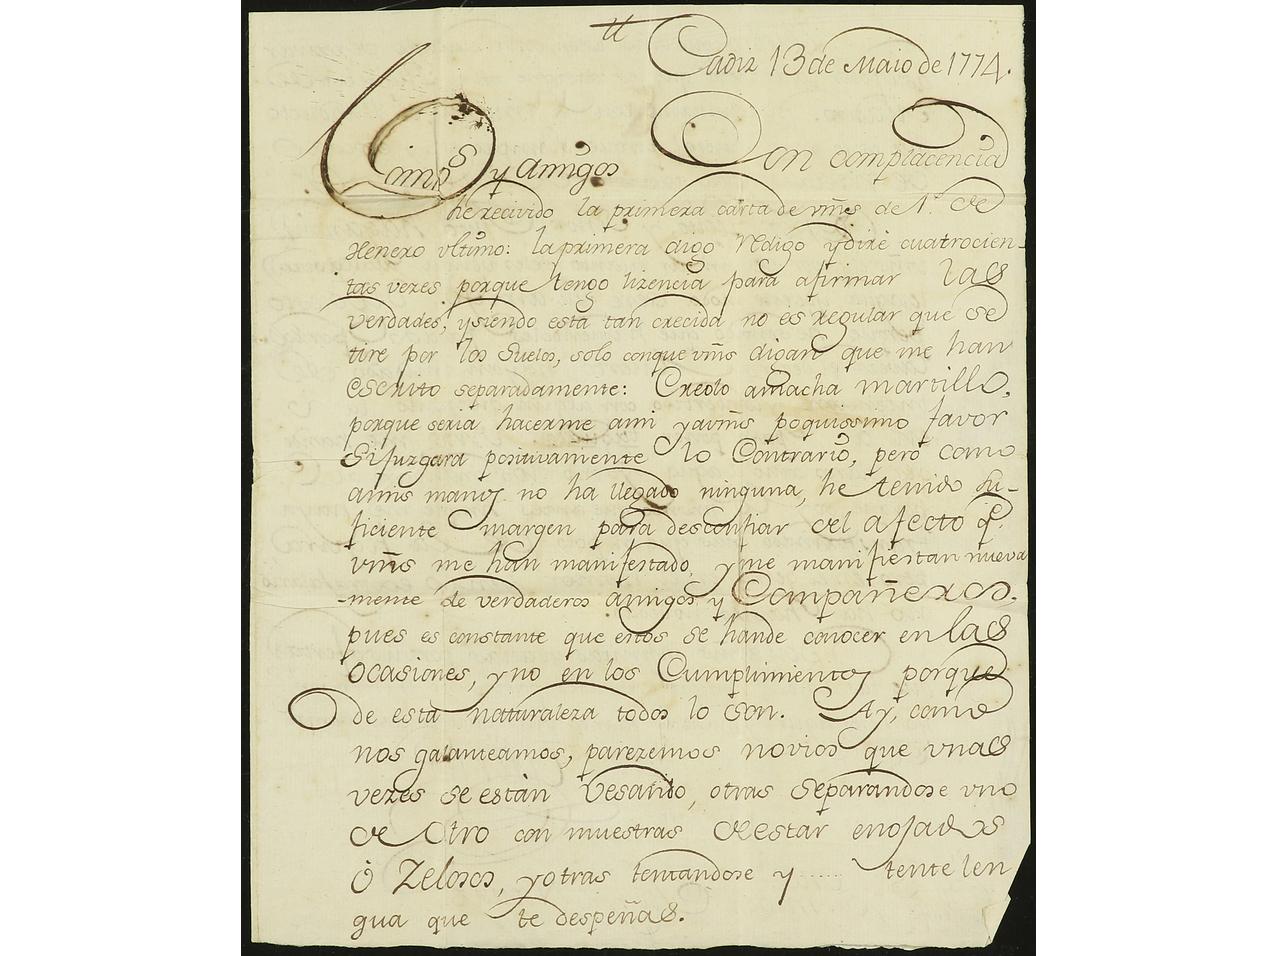 Cadiz 13 de Maio de 1774.
Comps. y amigos Con complacencia
he recivido la primera carta de vms de 1.º de
Henero ultimo: la primera digo Redigo y diré cuatrocien-
tas vezes porque tengo lizencia para afirmar las
verdades, y siendo esta tan crecida no es regular que se
tire por los Suelos, solo conque vms digan que me han
escrito separadamente: Creolo amacha martillo,
porque seria hacerme ami y avms poquissimo favor
Si juzgara positivamente lo Contrario, pero como
amis manos no ha llegado ninguna, he tenido Su-
ficiente margen para desconfiar del afecto q.e
vms me han manifestado, y me manifiestan nueva
-mente de verdaderos amigos y Compañeros.
pues es constante que estos se hande conocer en las
ocasiones, y no en los Cumplimientos porque
de esta naturaleza todos lo son. Ay, como
nos galanteamos, parezemos novios que unas
vezes se están vesando, otras separandose uno
de Otro con muestras de estar enojados
ò Zelosos, y otras tentandose y ...... tente len
gua que te despeñas.